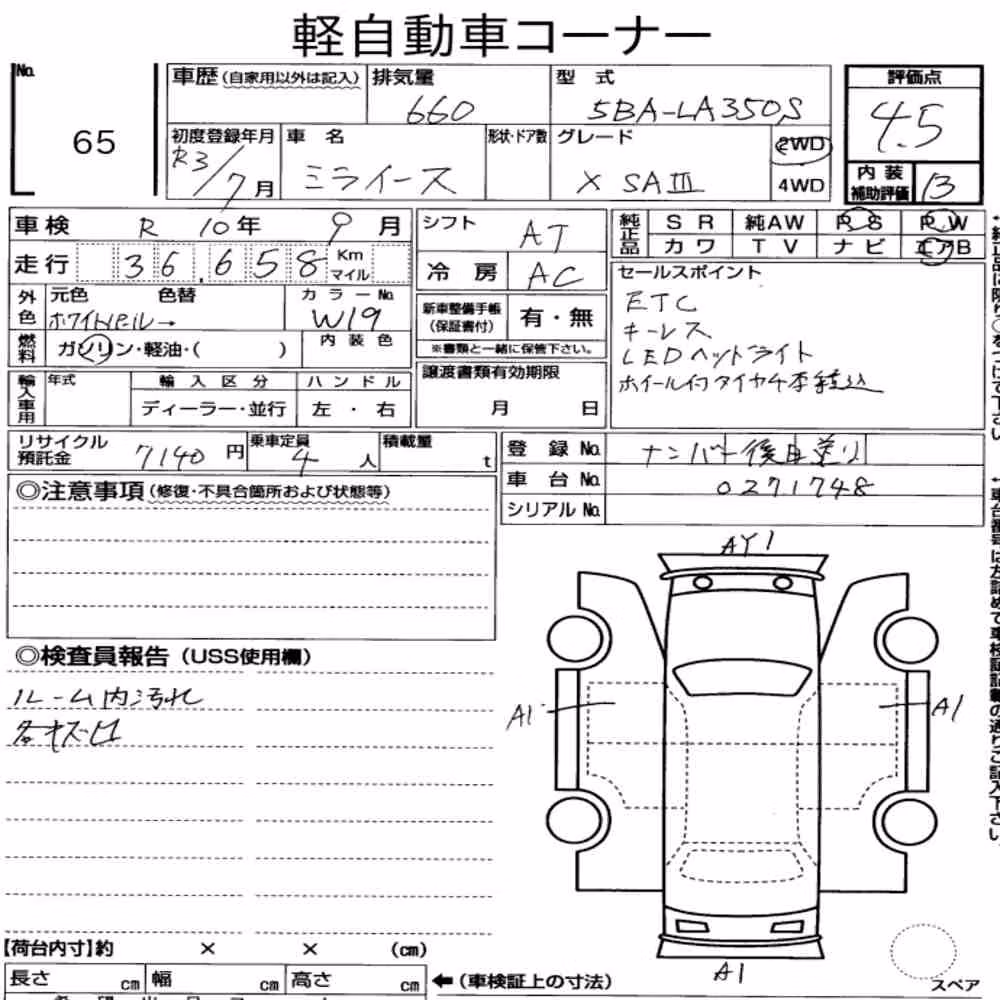 軽自動車コーナー
No. 65
車歴(自家用以外は記入)
排気量 660
型式 5BA-LA350S
評価点 4.5
初度登録年月 R3/7月
車名 ミライース
形状・ドア数
グレード X SAⅢ
2WD
4WD
内装補助評価 B
車検 R 10年 9月
シフト AT
純正品 SR 純AW PS PW
カワ TV ナビ エアB
走行 36,658 Km マイル
冷房 AC
セールスポイント
ETC
キーレス
LEDヘッドライト
ホイール付タイヤ4本積込
外色 元色 色替 カラーNo. W19
ホワイトパール→
新車整備手帳(保証書付) 有・無
※書類と一緒に保管下さい。
燃料 ガソリン・軽油・( )
内装色
譲渡書類有効期限
月 日
輸入車用 年式 輸入区分 ハンドル
ディーラー・並行 左・右
リサイクル預託金 7140円
乗車定員 4人
積載量 t
登録No. ナンバー後日送り
車台No. 0271748
シリアルNo.
◎注意事項(修復・不具合箇所および状態等)
◎検査員報告(USS使用欄)
ルーム内汚れ
各キズ凹
AY1
A1
A1
A1
【荷台内寸】約 × × (cm)
長さ cm 幅 cm 高さ cm
←(車検証上の寸法)
スペア